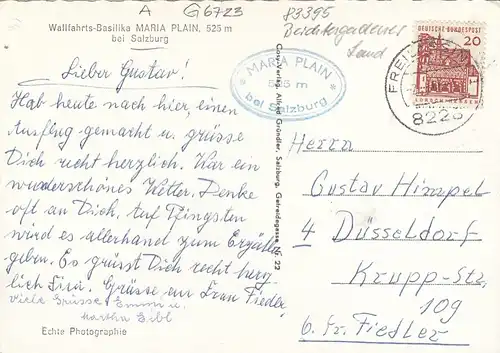 A G6723
83395
Wallfahrts-Basilika MARIA PLAIN, 525 m
bei Salzburg
Berchtesgadener
Land
DEUTSCHE BUNDESPOST
20
FREI
8228
* MARIA PLAIN *
525 m
bei Salzburg
Cosy-Verlag, Alfred Gründler, Salzburg, Getreidegasse Nr. 22
Lieber Gustav!
Hab heute nach hier, einen
Ausflug gemacht u. grüsse
Dich recht herzlich. War ein
wunderschönes Wetter. Denke
oft an Dich. Auf Pfingsten
wird es allerhand zum Erzählen
geben. Es grüsst Dich recht herz
lich Fini. Grüsse an Frau Fiedler,
Viele Grüsse Emmi u.
Martha Eibl
Echte Photographie
Herrn
Gustav Himpel
4 Düsseldorf
Krupp-Str.
109
b. Fr. Fiedler